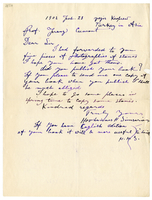 1902 Feb. 28
Prof. Franz Cumont
Dear Sir,
I had forwarded to you
five pieces of photographies of stones
I hope you have got them.
Did you publish your book?
If you please to send me one copy of
your book when you publish I shall
be much obliged.
I hope to go some places in
Spring time to copy some stones.
Kindred regards
Truly Yours
If you have English edition
of your book it will be more useful to me